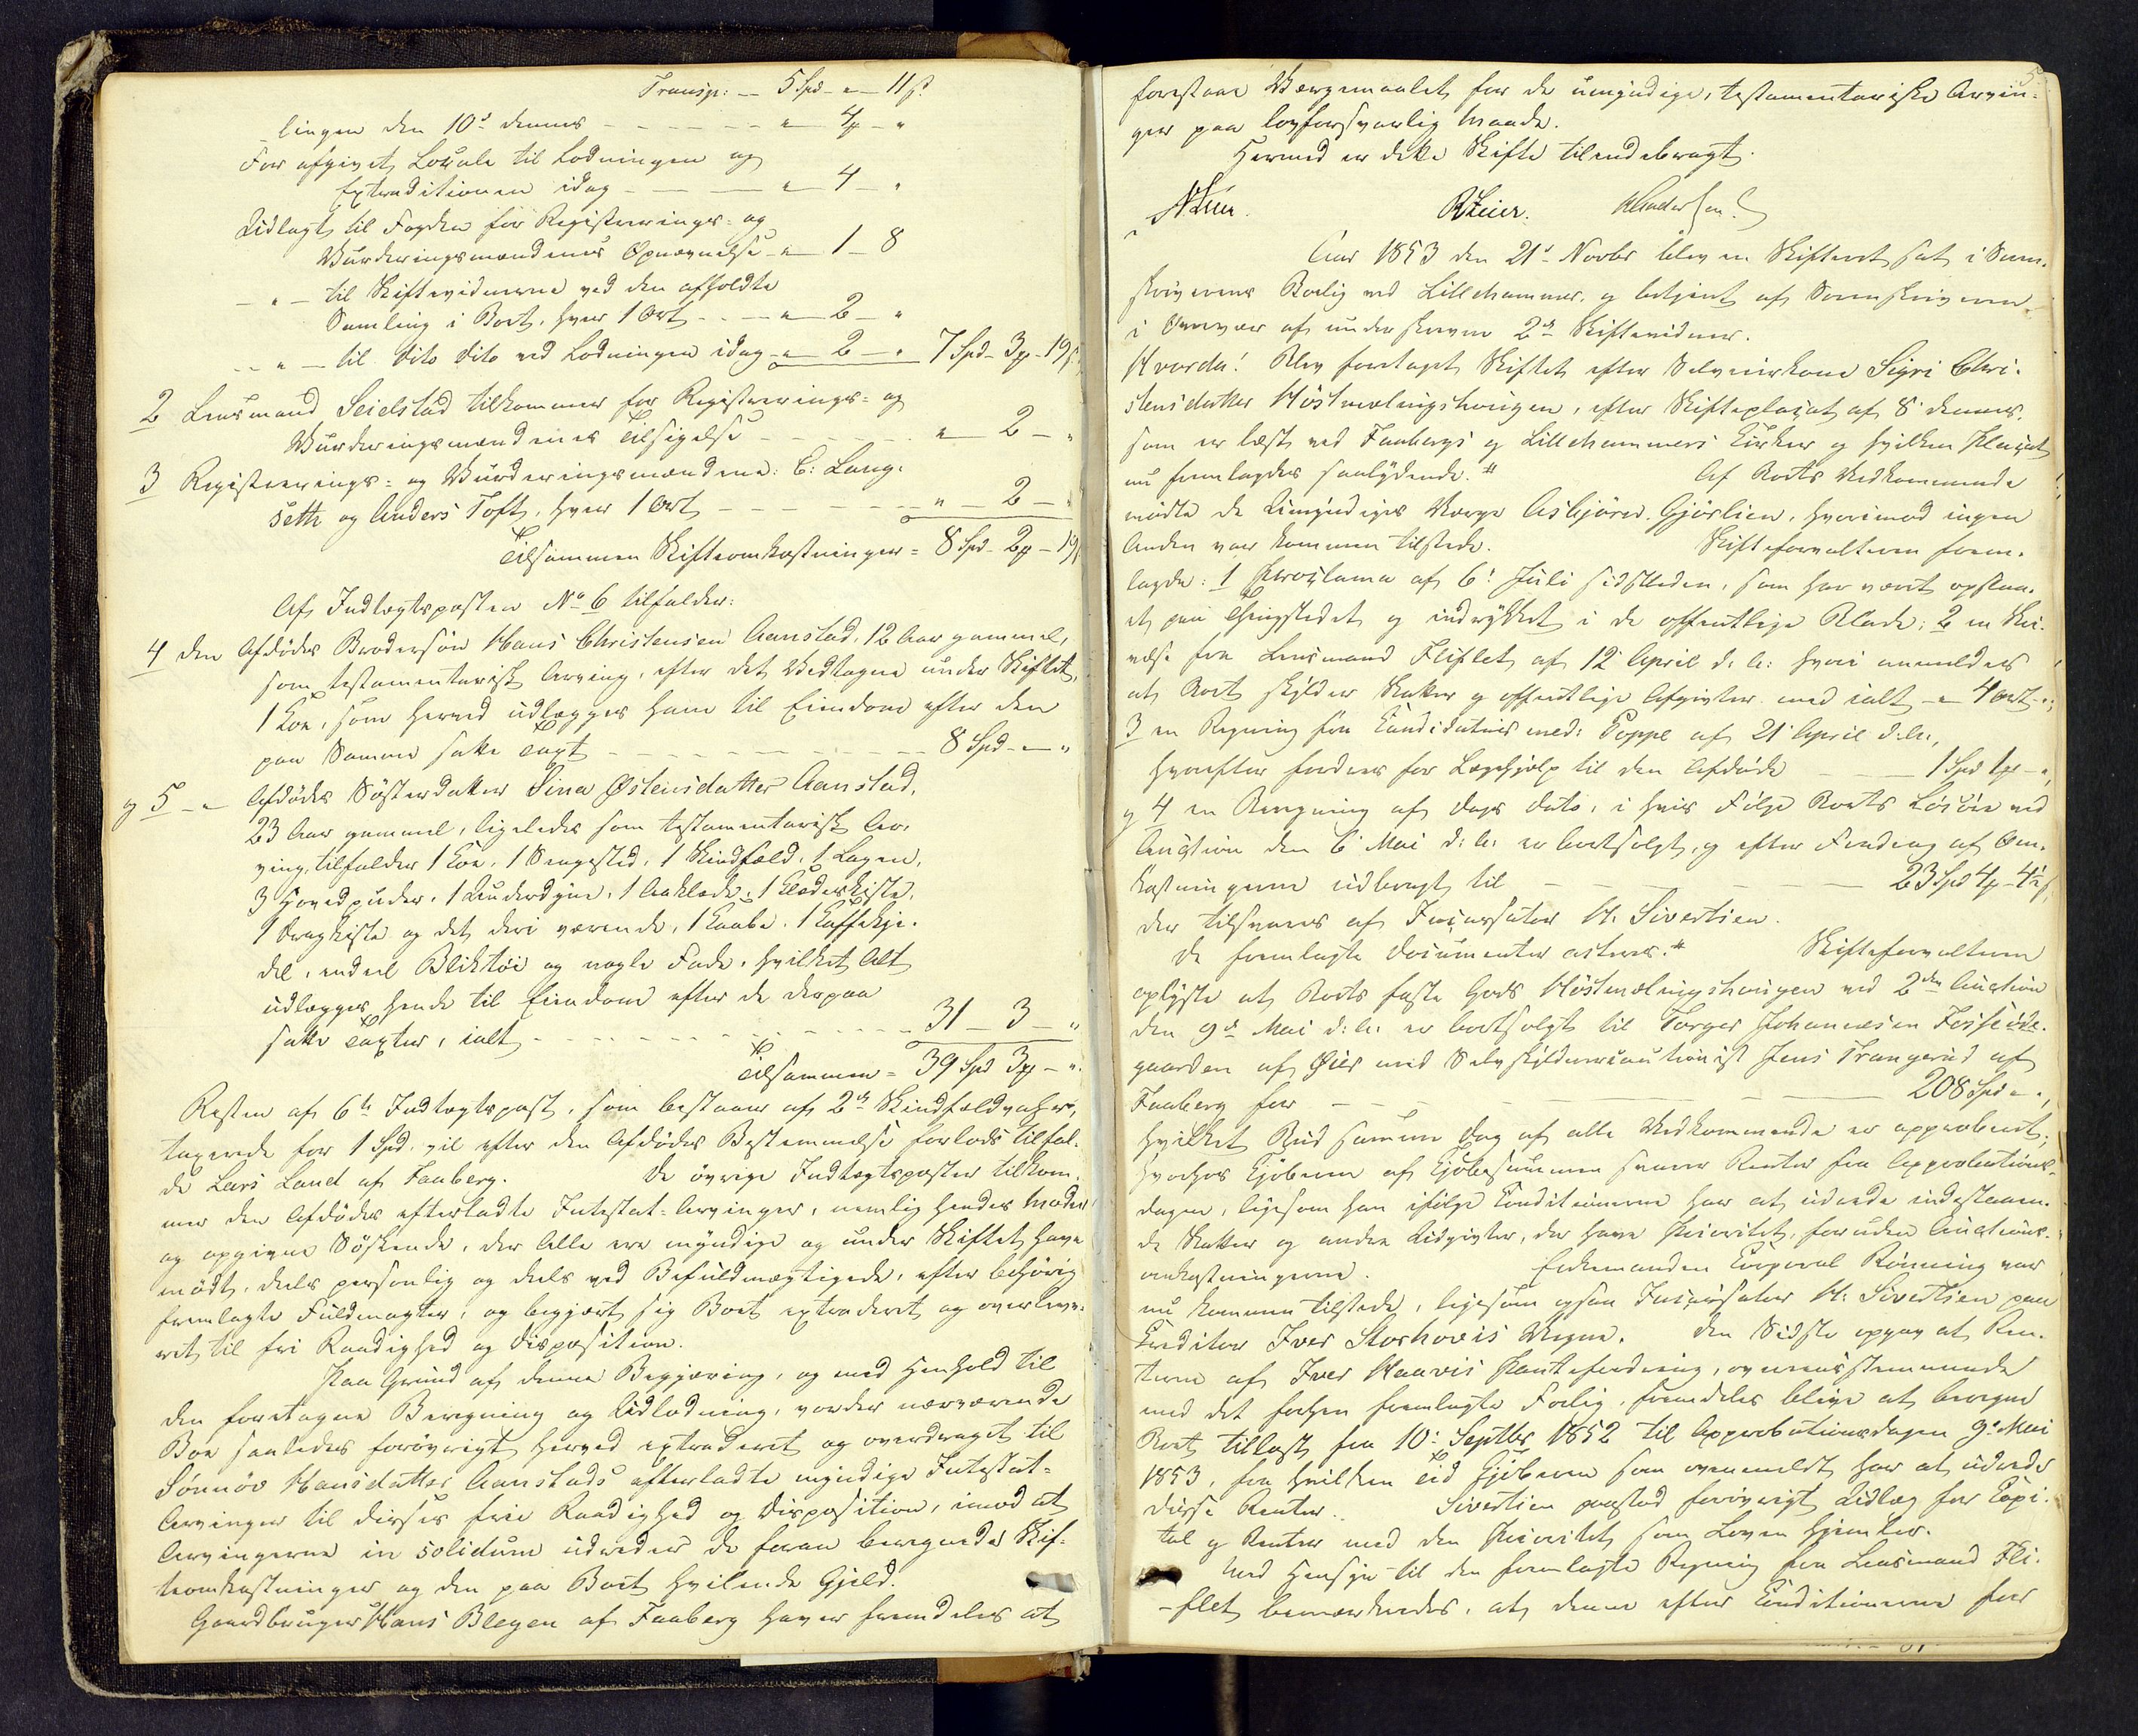 Transp: — 5 Spd — " — 11 ß
lingen den 10de dennes — — — " — 4 ß — "
For afgivet Locale til Lodningen og
Extraditionen idag — — — " 4 "
Udlagt til Fogden for Registrerings- og
Vurderingsmændenes Opnævnelse — " — 1 — 8
— " — til Skiftevidnerne ved den afholdte
Samling i Boet, hver 1 Ort — — " — 2 — "
— " — til dito dito ved Lodningen idag — " — 2 — " 7 Spd — 3 ß — 19 ß
2 Lensmand Seielstad tilkommer for Registrerings- og
Vurderingsmændenes Tilsigelse — — — " — 2 — "
3 Registrerings- og Vurderingsmændene: C: Lang-
seth og Anders Toft, hver 1 Ort — — — " — 2 — "
Tilsammen Skifteomkostninger = 8 Spd — 2 ß — 19 ß
Af Indtægtsposten No 6 tilfalder:
4 den Afdødes Brodersøn Hans Christensen Aanstad, 12 Aar gammel,
som testamentarisk Arving, efter det Vedtagne under Skiftet,
1 Koe, som herved udlægges ham til Eiendom efter den
paa Samme satte Taxt — — — 8 Spd — " — "
og 5 — " — Afdødes Søsterdatter Sina Østensdatter Aanstad,
23 Aar gammel, ligeledes som testamentarisk Ar-
ving, tilfalder 1 Koe, 1 Sengested, 1 Skindfeld, 1 Lagen,
3 Hovedpuder, 1 Underdyne, 1 Aaklæde, 1 Klædeskiste,
1 Dragkiste og det deri værende, 1 Kaabe, 1 Kaffekje-
del, endeel Bliktøi og nogle Fade, hvilket Alt
udlægges hende til Eiendom efter de derpaa
satte Taxter, ialt — — — 31 — 3 — "
Tilsammen = 39 Spd 3 ß — "
Resten af 6te Indtægtspost, som bestaaer af 2de Skindfeldvaher,
taxerede for 1 Spd. vil efter den Afdødes Bestemmelse forlods tilfal-
de Lars Land af Faaberg. De øvrige Indtægtsposter tilkom-
mer den Afdødes efterladte Intestat-Arvinger, nemlig hendes Moder
og opgivne Søskende, der Alle ere myndige og under Skiftet have
mødt, deels personlig og deels ved Befuldmægtigede, efter behørig
fremlagte Fuldmagter, og begjært sig Boet extraderet og overleve-
ret til fri Raadighed og Disposition.
Paa Grund af denne Begjæring, og med Henhold til
den foretagne Beregning og Udlodning, vorder nærværende
Boe saaledes forøvrigt herved extraderet og overdraget til
Sønnøv Hansdatter Aanstads efterladte myndige Intestat-
Arvinger til disses frie Raadighed og Disposition, imod at
Arvingerne in solidum udreder de foran beregnede Skif-
teomkostninger og den paa Boet hvilende Gjeld.
Gaardbruger Hans Blegen af Faaberg haver fremdeles at
5
forestaae Værgemaalet for de umyndige, testamentariske Arvin-
ger paa lovforsvarlig Maade.
Hermed er dette Skifte tilendebragt.
Aar 1853 den 21de Novbr blev en Skifteret sat i Soren-
skriverens Bolig ved Lillehammer, og betjent af Sorenskriveren
i Overvær af underskrevne 2de Skiftevidner.
Hvorda! Blev foretaget Skiftet efter Selveierkone Sigri Chri-
stensdatter Höstmælingshougen, efter Skifteplacat af 8 dennes,
som er læst ved Faabergs og Lillehammers Kirker og hvilken Placat
nu fremlagdes saalydende. # Af Boets Vedkommende
mødte de Umyndiges Værge Asbjörnd. Gjörlien, hvorimod ingen
Anden var kommen tilstede. Skifteforvalteren frem-
lagde: 1 Proclama af 6te Juli sidstleden, som har været opslaa-
et paa Thingstedet og indrykket i de offentlige Blade; 2 en Skri-
velse fra Lensmand Fliflet af 12 April d: A: hvori anmeldes
at Boet skylder Skatter og offentlige Afgivter med ialt — " 4 Ort — ";
3 en Regning fra Candidatus med: Poppe af 21 April d: A:,
hvorefter fordres for Lægehjælp til den Afdøde — — 1 Spd 1 ß — ",
og 4 en Beregning af Dags Dato, i hvis Følge Boets Løsøre ved
Auction den 6 Mai d: A: er bortsolgt, og efter Fradrag af Om-
kostningerne udbragt til — — — 23 Spd 4 ß — 4½ ß,
der tilsvares af Incassator H. Sivertsen.
de fremlagte Documenter acteres. # Skifteforvalteren
oplyste at Boets faste Gods Höstmælingshougen ved 2den Auction
den 9de Mai d: A: er bortsolgt til Torger Johannesen Fossøde-
gaarden af Öier med Selvskyldnercautionist Jens Trangerud af
Faaberg for — — — 208 Spd — ",
hvilket Bud samme Dag af alle Vedkommende er approberet;
hvorhos Kjöberen af Kjöbesummen svarer Renter fra Approbations-
dagen, ligesom han ifølge Conditionerne har at udrede indestaaen-
de Skatter og andre Udgivter, der have Prioritet, foruden Auctions-
omkostningerne. Enkemanden Corporal Rönning var
nu kommen tilstede, ligesom ogsaa Incassator H: Sivertsen paa
Creditor Iver Storhovis Vegne. Den Sidste opgav at Ren-
terne af Iver Haavis Pantefordring, overensstemmende
med det forhen fremlagte Forlig, fremdeles blive at beregne
Boet tillast fra 10de Septbr 1852 til Approbationsdagen 9de Mai
1853, fra hvilken Tid Kjöberen som ovenmeldt har at udrede
disse Renter. Sivertsen paastod forøvrigt Udlæg for Capi-
tal og Renter med den Prioritet som Loven hjemler.
Med Hensyn til den fremlagte Regning fra Lensmand Fli-
flet bemærkedes, at denne efter Conditionerne for